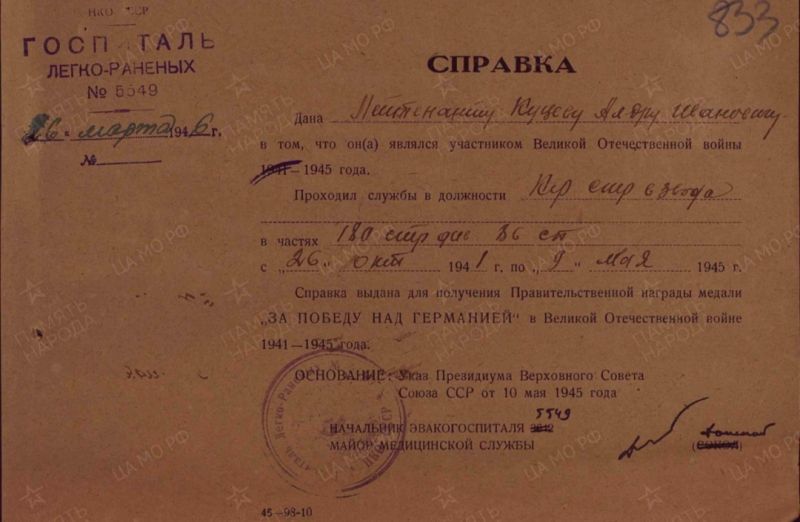 НКО СССР
ГОСПИТАЛЬ
ЛЕГКО-РАНЕНЫХ
№ 5549
"26" марта 1946 г.
№
833
СПРАВКА
Дана Лейтенанту Ивановичу
в том, что он(а) являлся участником Великой Отечественной войны
1941—1945 года.
Проходил службы в должности Кир стр взвода
в частях 180 стр див 86 сп
с „26" окт 1941 г. по „9" мая 1945 г.
Справка выдана для получения Правительственной награды медали
„ЗА ПОБЕДУ НАД ГЕРМАНИЕЙ" в Великой Отечественной войне
1941—1945 года.
ОСНОВАНИЕ: Указ Президиума Верховного Совета
Союза ССР от 10 мая 1945 года
5549
НАЧАЛЬНИК ЭВАКОГОСПИТАЛЯ
МАЙОР МЕДИЦИНСКОЙ СЛУЖБЫ
45—98-10
ПАМЯТЬ НАРОДА
ЦА МО РФ